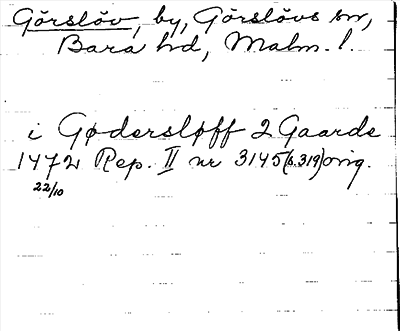 Görslöv, by, Görslövs sn,
Bara hd, Malm. l.
i Gødersløff 2 Gaarde
1472 Rep. II nr 3145 (s. 319) orig.
22/10